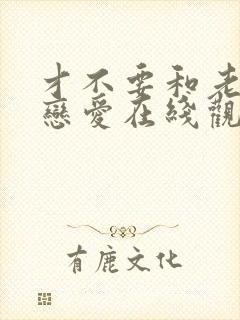 才不要和老
戀愛在綫觀
有鹿文化